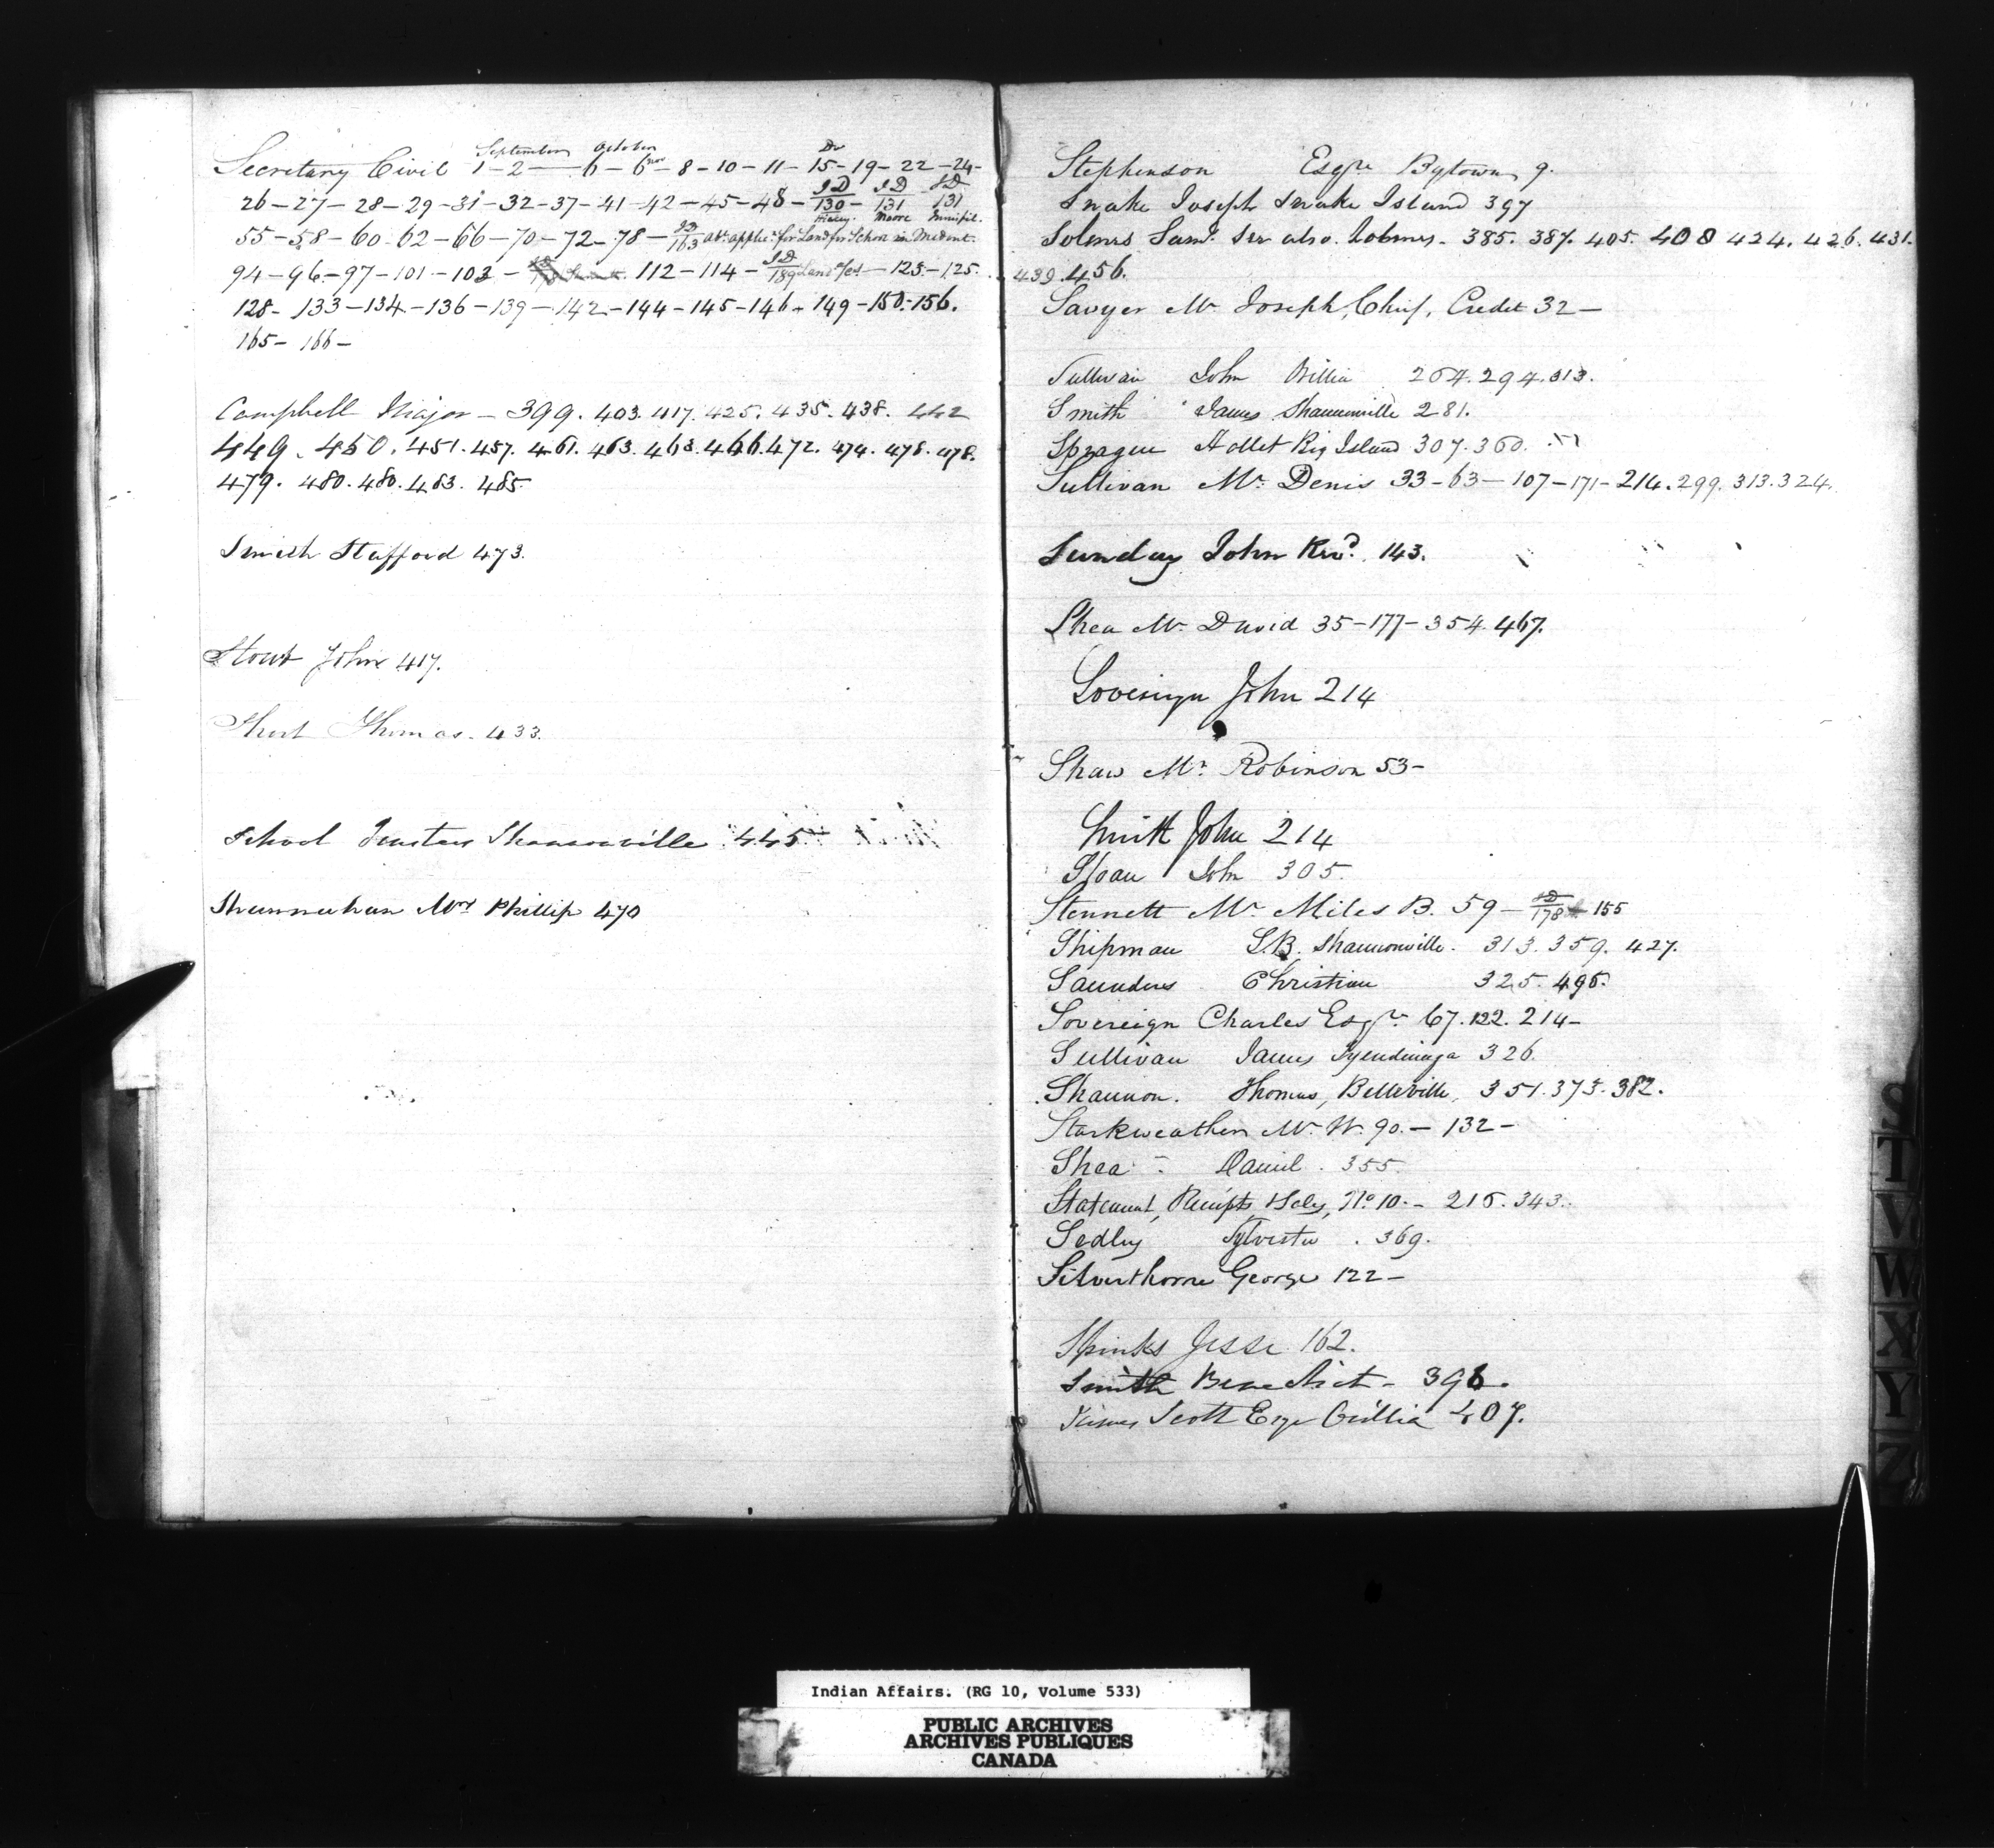 September October Dr
Secretary Civil 1-2 — 6 - 6 nov - 8 - 10 - 11 - 15 - 19 - 22 - 24 -
26 - 27 - 28 - 29 - 31 - 32 - 37 - 41 - 42 - 45 - 48 - ID 130 - ID 131 ID 131
Moore
55 - 58 - 60 - 62 - 66 - 70 - 72 - 78 - ID 163 for Land for School in
94 - 96 - 97 - 101 - 103 - 112 - 114 - ID 189 Land - 123 - 125.
128 - 133 - 134 - 136 - 139 - 142 - 144 - 145 - 146 - 149 - 150. 156.
165 - 166 -
Campbell Major - 399. 403. 417. 425. 435. 438. 442
449. 450. 451. 457. 461. 463. 463. 466. 472. 474. 478. 478.
479. 480. 480. 483. 485.
Smith Stafford 473.
Stout John 417.
Short Thomas. 433.
School Trustees Shannonville 445
Shannahan Mrs Phillip 470
Stephenson Esqre Bytown 9.
Snake Joseph Snake Island 397
Solmes Saml. See also Holmes - 385. 387. 405. 408 424. 426. 431.
439. 456.
Sawyer Mr Joseph, Chief, Credit 32 -
Sullivan John 264. 294. 313.
Smith James Shannonville 281.
Sprague Hallet Big Island 307. 360.
Sullivan Mr. Denis 33 - 63 - 107 - 171 - 214. 299. 313. 324.
Sunday John Revd. 143.
Shea Mr. David 35 - 177 - 354. 467.
Sovereign John 214
Shaw Mr. Robinson 53 -
Smith John 214
Sloan John 305.
Stennett Mr. Miles B. 59 - ID 178 - 155
Shipman S.B. Shannonville. 313. 359. 427.
Saunders Christian 325. 495.
Sovereign Charles Esqr. 67. 122. 214 -
Sullivan James Tyendinaga 326.
Shannon. Thomas, Belleville, 351. 373. 382.
Starkweather Mr. W. 90. - 132 -
Shea Daniel. 355.
Statement, Receipts, Sales, No 10. - 216. 343.
Sedley Sylvester. 369.
Silverthorne George 122 -
Spinks Jesse 162.
Smith Benedict - 396.
James Scott Esqr Orillia 407.
S
T
V
W
X
Y
Z
Indian Affairs. (RG 10, Volume 533)
PUBLIC ARCHIVES
ARCHIVES PUBLIQUES
CANADA